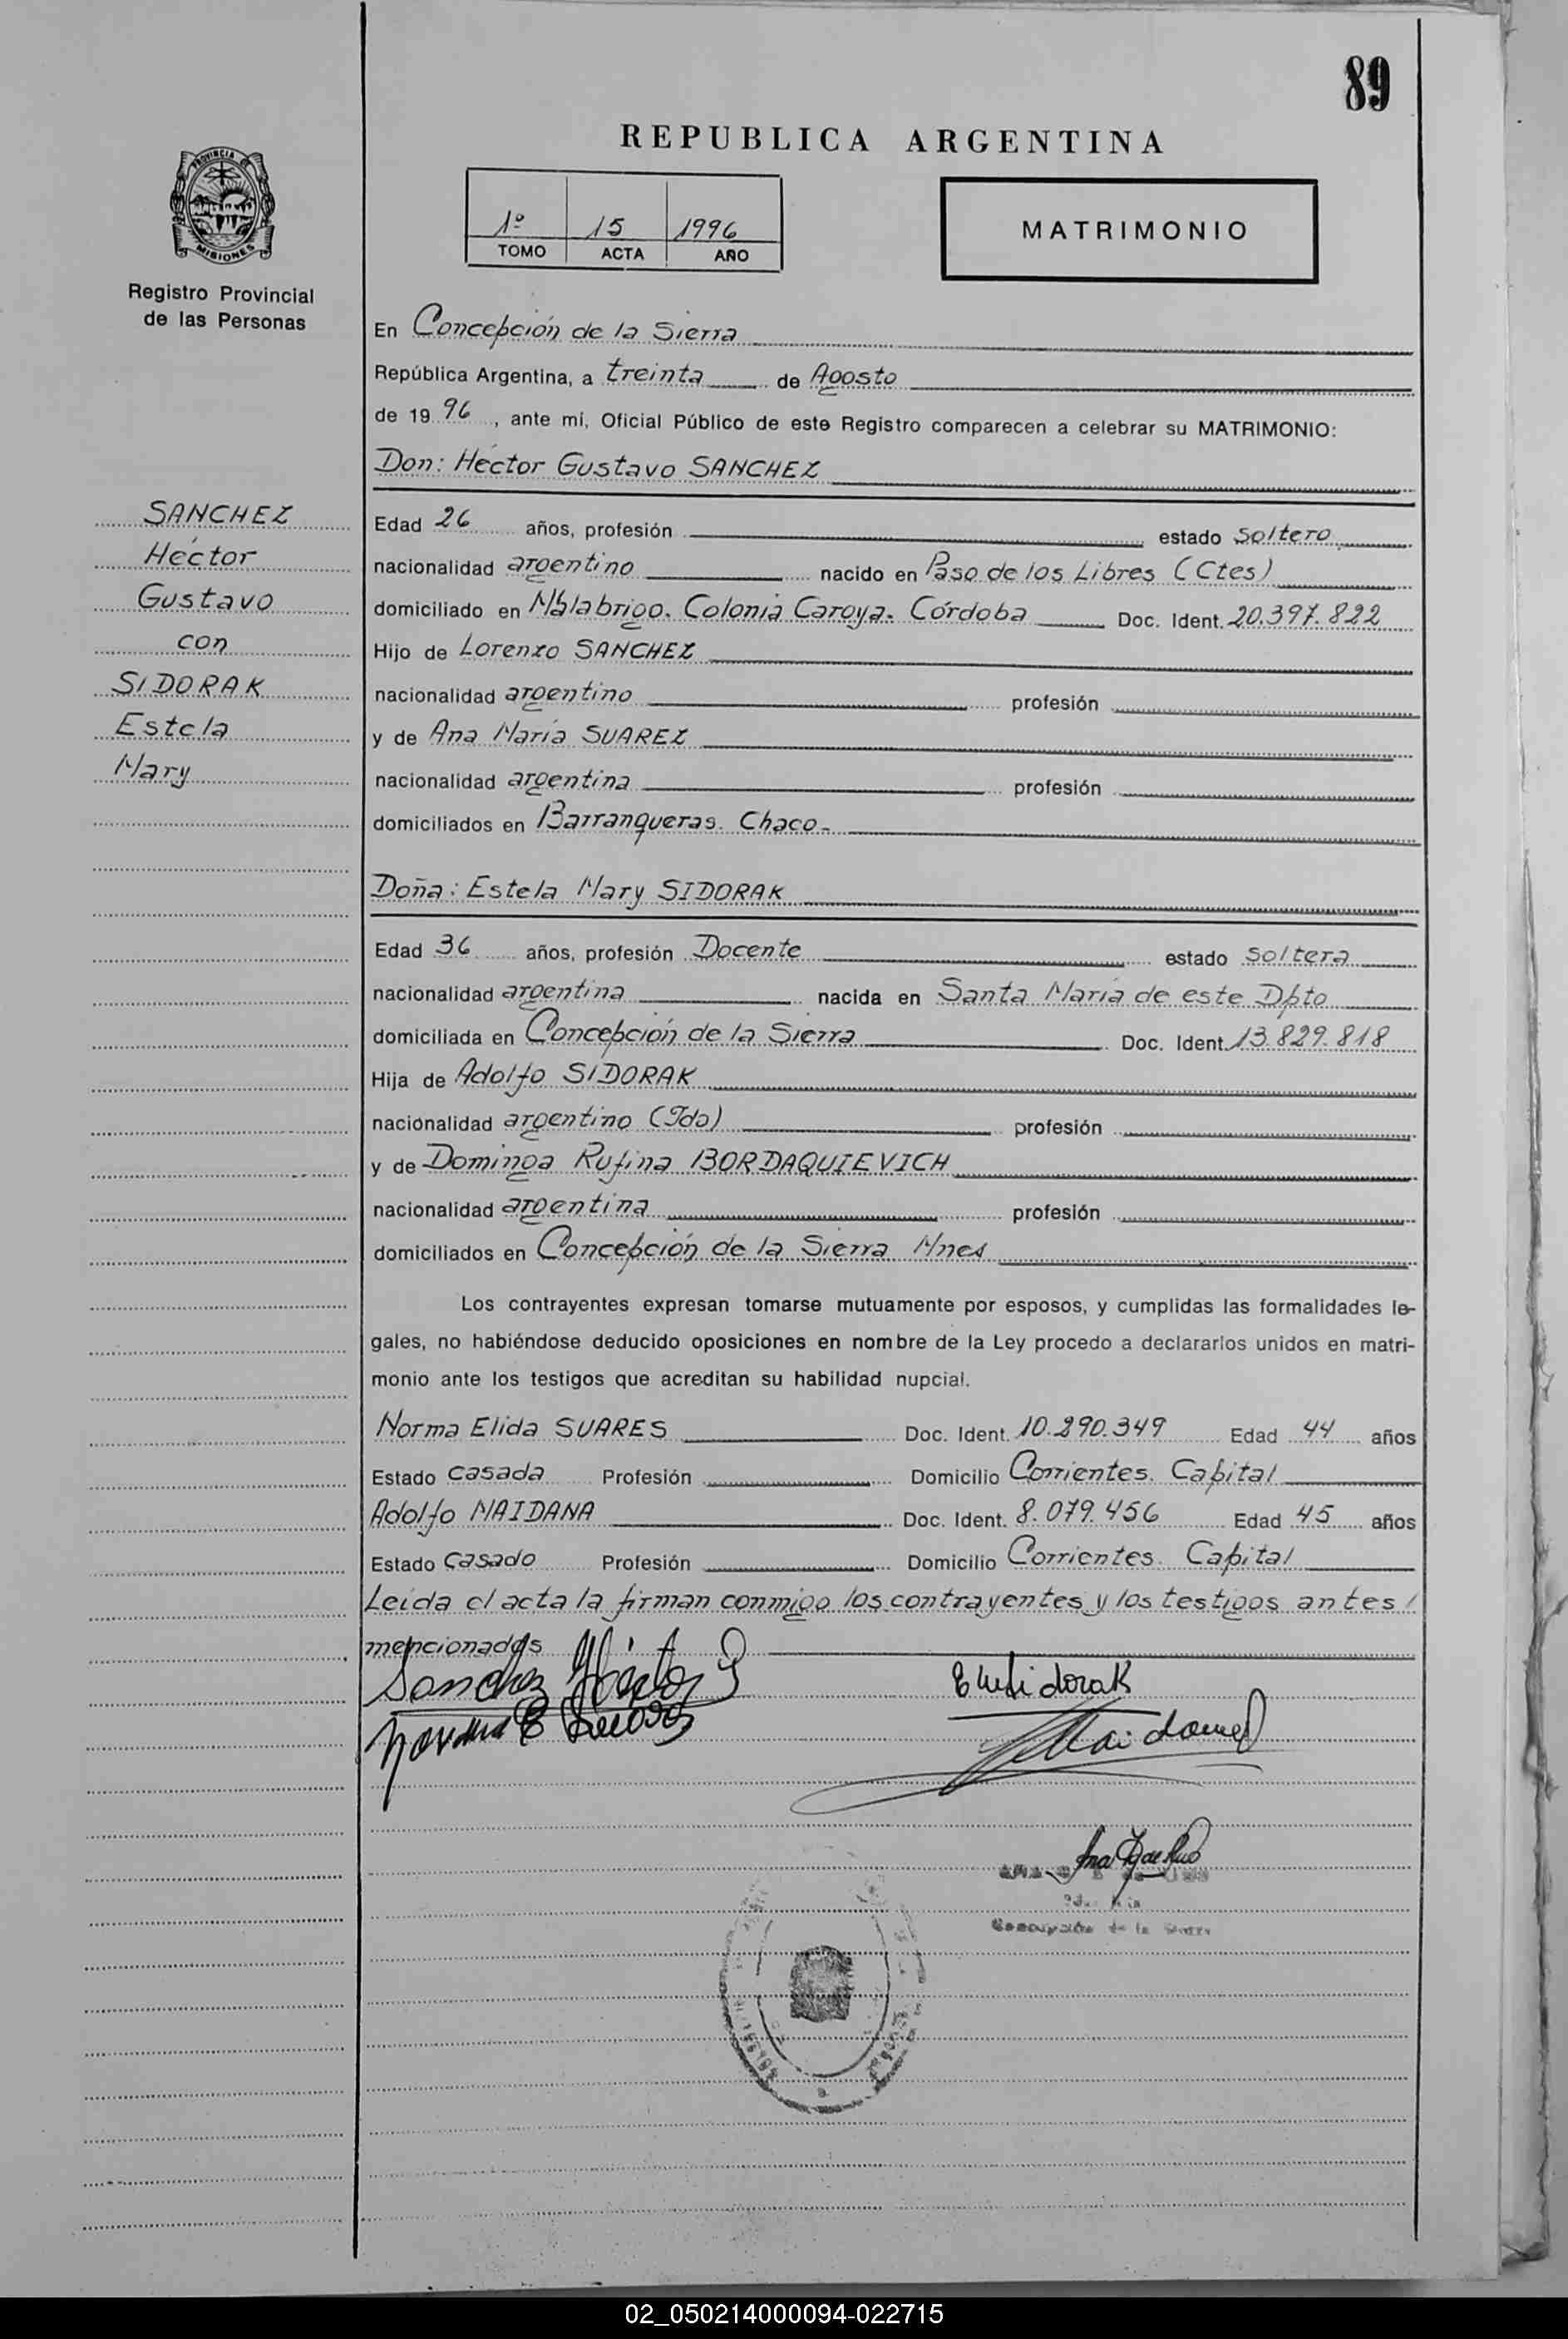 89
REPUBLICA ARGENTINA
PROVINCIA DE
MISIONES
Registro Provincial
de las Personas
1º 15 1996
TOMO ACTA AÑO
MATRIMONIO
En Concepción de la Sierra
República Argentina, a treinta de Agosto
de 19 96, ante mí, Oficial Público de este Registro comparecen a celebrar su MATRIMONIO:
Don: Héctor Gustavo SANCHEZ
SANCHEZ
Héctor
Gustavo
con
SIDORAK
Estela
Mary
Edad 26 años, profesión estado soltero
nacionalidad argentino nacido en Paso de los Libres (Ctes)
domiciliado en Malabrigo. Colonia Caroya. Córdoba Doc. Ident. 20.397.822
Hijo de Lorenzo SANCHEZ
nacionalidad argentino profesión
y de Ana María SUAREZ
nacionalidad argentina profesión
domiciliados en Barranqueras. Chaco-
Doña: Estela Mary SIDORAK
Edad 36 años, profesión Docente estado soltera
nacionalidad argentina nacida en Santa María de este Dpto
domiciliada en Concepción de la Sierra Doc. Ident. 13.829.818
Hija de Adolfo SIDORAK
nacionalidad argentino (Fdo) profesión
y de Dominga Rufina BORDAQUIEVICH
nacionalidad argentina profesión
domiciliados en Concepción de la Sierra Mnes
Los contrayentes expresan tomarse mutuamente por esposos, y cumplidas las formalidades le-
gales, no habiéndose deducido oposiciones en nombre de la Ley procedo a declararlos unidos en matri-
monio ante los testigos que acreditan su habilidad nupcial.
Norma Elida SUARES Doc. Ident. 10.290.349 Edad 44 años
Estado casada Profesión Domicilio Corrientes. Capital
Adolfo MAIDANA Doc. Ident. 8.079.456 Edad 45 años
Estado casado Profesión Domicilio Corrientes. Capital
Leída el acta la firman conmigo los contrayentes y los testigos antes/
mencionados
Sanchez Héctor G
EMSidorak
Norma E Suares
Maidana
Concepción de la Sierra
02_050214000094-022715